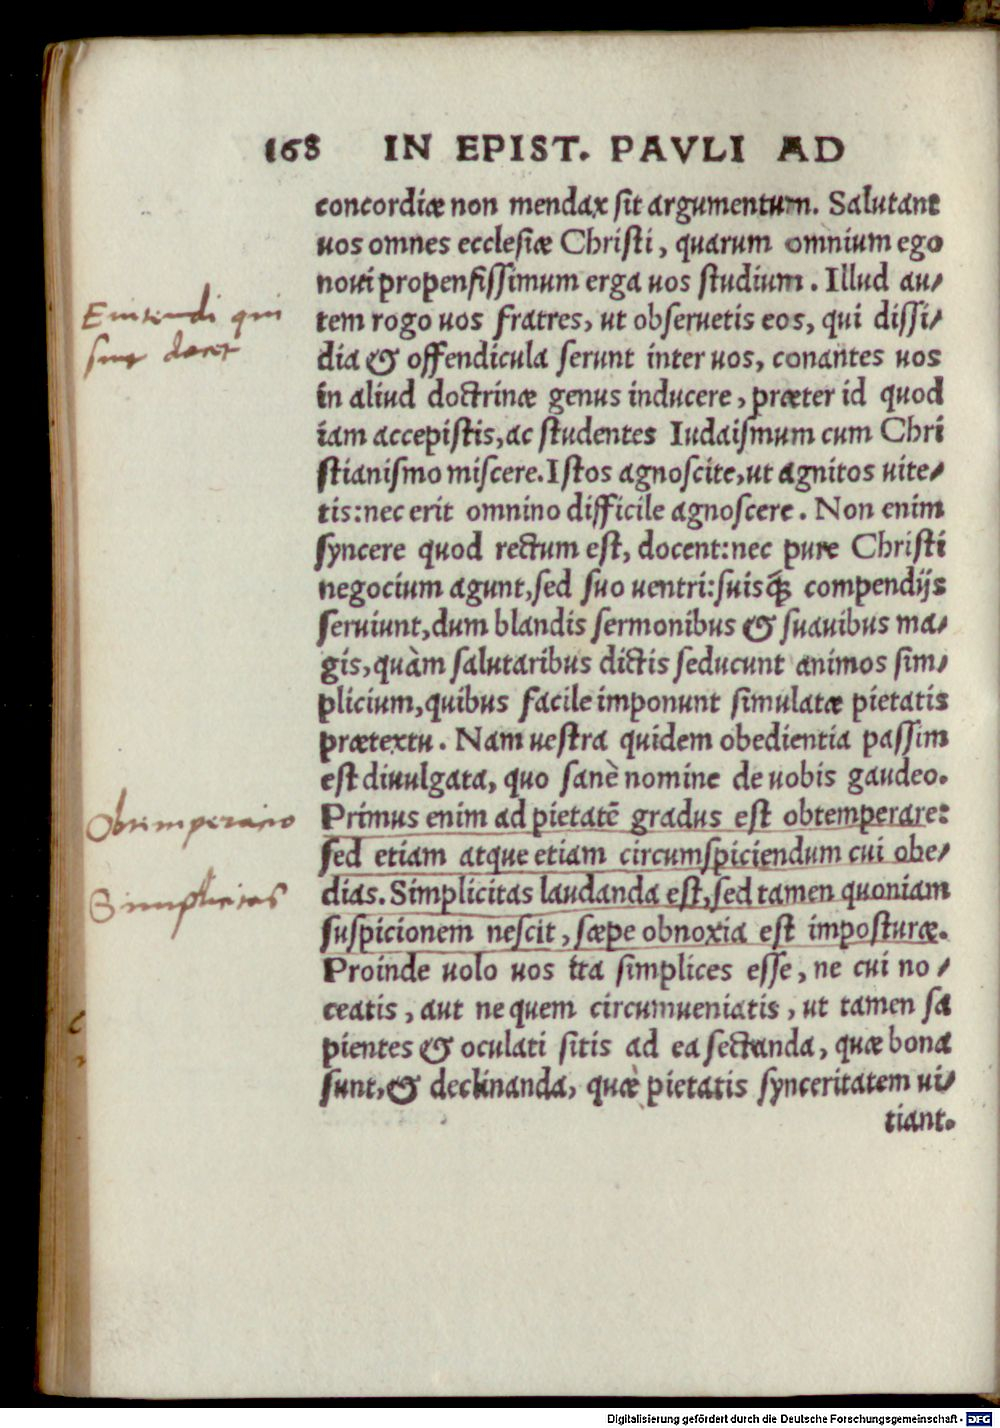 168 IN EPIST. PAVLI AD
concordiæ non mendax sit argumentum. Salutant
uos omnes ecclesiæ Christi, quarum omnium ego
noui propensissimum erga uos studium. Illud au/
tem rogo uos fratres, ut obseruetis eos, qui dissi/
dia & offendicula serunt inter uos, conantes uos
in aliud doctrinæ genus inducere, præter id quod
iam accepistis, ac studentes Iudaismum cum Chri
stianismo miscere. Istos agnoscite, ut agnitos uite/
tis: nec erit omnino difficile agnoscere. Non enim
syncere quod rectum est, docent: nec pure Christi
negocium agunt, sed suo uentri: suisq́; compendijs
seruiunt, dum blandis sermonibus & suauibus ma/
gis, quàm salutaribus dictis seducunt animos sim/
plicium, quibus facile imponunt simulatæ pietatis
prætextu. Nam uestra quidem obedientia passim
est diuulgata, quo sanè nomine de uobis gaudeo.
Primus enim ad pietatẽ gradus est obtemperare:
sed etiam atque etiam circumspiciendum cui obe/
dias. Simplicitas laudanda est, sed tamen quoniam
suspicionem nescit, sæpe obnoxia est imposturæ.
Proinde uolo uos ita simplices esse, ne cui no/
ceatis, aut ne quem circumueniatis, ut tamen sa
pientes & oculati sitis ad ea sectanda, quæ bona
sunt, & declinanda, quæ pietatis synceritatem ui/
tiant.
Euitendi qui
sint docet
Obtemperatio
Simplicitas
Digitalisierung gefördert durch die Deutsche Forschungsgemeinschaft - DFG